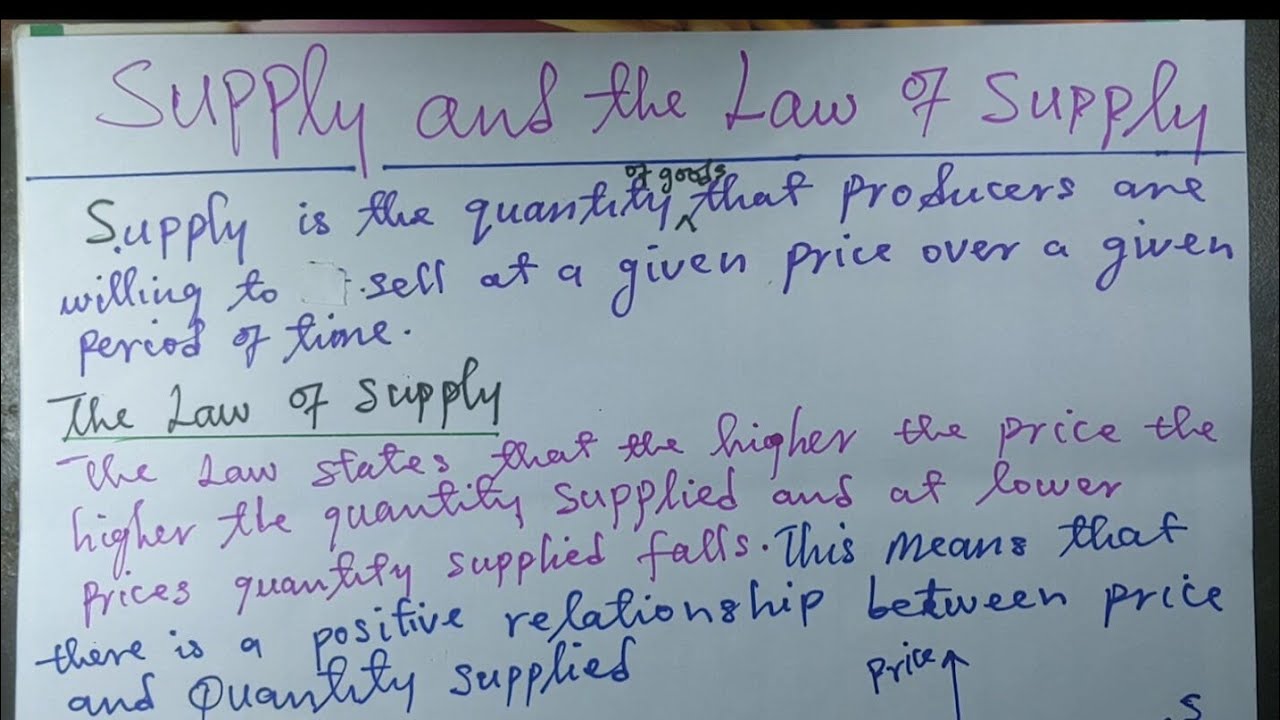 Supply and the Law of Supply
Supply is the quantity of goods that producers are
willing to sell at a given price over a given
period of time.
The Law of Supply
The Law states that the higher the price the
higher the quantity supplied and at lower
prices quantity supplied falls. This means that
there is a positive relationship between price
and Quantity supplied
price
S